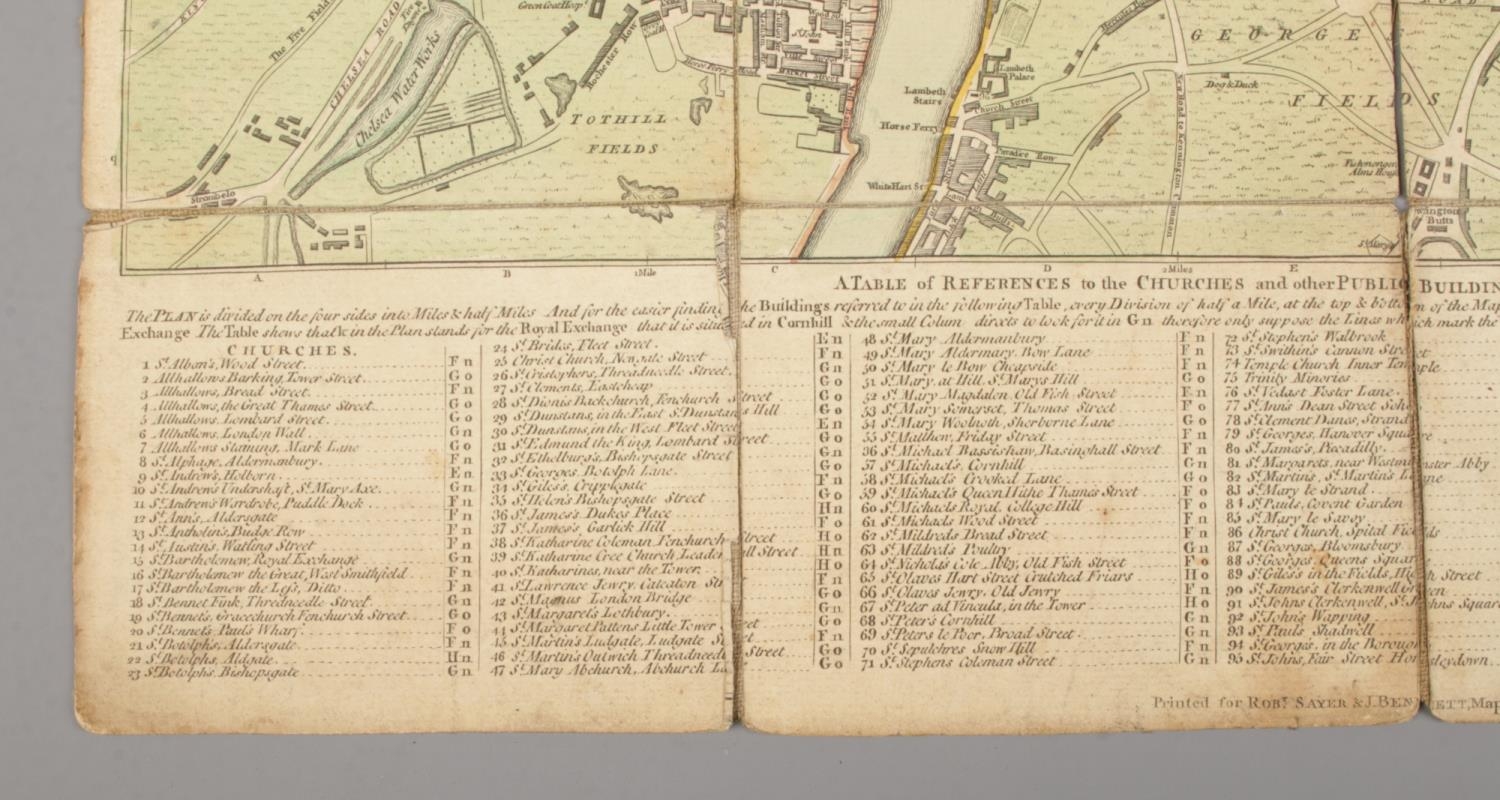 KIN
The Five Field
CHELSEA ROAD
Green Coat Hosp.
Rochester Row
Chelsea Water Works
TOTHILL
FIELDS
Strombelo
St. John
Market Street
Horse Ferry Road
Lambeth Stairs
Lambeth Palace
Church Street
Horse Ferry
Paradice Row
White Hart St.
GEORGE
FIELDS
ROAD
Dog & Duck
New Road to Kennington Common
Fishmongers Alms Hous
wington Butts
St. Mary
q
A
B
1 Mile
C
D
2 Miles
E
A TABLE of REFERENCES to the CHURCHES and other PUBLIC BUILDIN
The PLAN is divided on the four sides into Miles & half Miles And for the easier finding he Buildings referred to in the following Table, every Division of half a Mile, at the top & bottom of the Map
Exchange The Table shews that k in the Plan stands for the Royal Exchange that it is situa ed in Cornhill & the small Colum directs to look for it in G n therefore only suppose the Lines which mark the
CHURCHES.
1 St. Alban's, Wood Street. F n
2 Allhallows Barking, Tower Street. G o
3 Allhallows, Bread Street. F n
4 Allhallows, the Great Thames Street. G o
5 Allhallows, Lombard Street. G o
6 Allhallows, London Wall. G n
7 Allhallows Staining, Mark Lane G o
8 St. Alphage, Aldermanbury. F n
9 St. Andrew's, Holborn. E n
10 St. Andrew's Undershaft, St. Mary Axe. G n
11 St. Andrew's Wardrobe, Puddle Dock F n
12 St. Ann's, Aldersgate F n
13 St. Antholin's, Budge Row F n
14 St. Austin's, Watling Street F n
15 St. Bartholemew, Royal Exchange G n
16 St. Bartholemew the Great, West Smithfield F n
17 St. Bartholemew the Less, Ditto F n
18 St. Bennet Fink, Thredneedle Street G n
19 St. Bennet's, Gracechurch Fenchurch Street G o
20 St. Bennet's, Pauls Wharf F o
21 St. Botolph's, Aldersgate F n
22 St. Botolphs, Aldgate H n
23 St. Botolphs, Bishopsgate G n
24 St. Brides, Fleet Street. E n
25 Christ Church, Newgate Street F n
26 St. Cristophers, Threadneedle Street G n
27 St. Clements, Eastcheap G o
28 St. Dionis Backchurch, Fenchurch Street G o
29 St. Dunstans, in the East St. Dunstans Hill G o
30 St. Dunstans, in the West Fleet Street E n
31 St. Edmund the King, Lombard Street G o
32 St. Ethelburg's, Bishopsgate Street G n
33 St. Georges, Botolph Lane. G o
34 St. Giles's, Cripplegate F n
35 St. Helen's Bishopsgate Street G n
36 St. James's Dukes Place H n
37 St. James's, Garlick Hill F o
38 St. Katharine Coleman, Fenchurch Street H o
39 St. Katharine Cree Church, Leaden all Street H n
40 St. Katharines, near the Tower. H o
41 St. Lawrence Jewry, Cateaton Str F n
42 St. Magnus London Bridge G o
43 St. Margarets Lothbury. G n
44 St. Margaret Pattens Little Tower Street G o
45 St. Martin's Ludgate, Ludgate Street F n
46 St. Martin's Outwich Threadneedle Street G n
47 St. Mary Abchurch, Abchurch La G o
48 St. Mary Aldermanbury F n
49 St. Mary Aldermary, Bow Lane F n
50 St. Mary le Bow Cheapside F n
51 St. Mary, at Hill, St. Marys Hill G o
52 St. Mary Magdalen, Old Fish Street F n
53 St. Mary Somerset, Thomas Street F o
54 St. Mary Woolnoth, Sherborne Lane G o
55 St. Matthew, Friday Street F n
56 St. Michael Bassishaw, Basinghall Street F n
57 St. Michael's, Cornhill G n
58 St. Michael's Crooked Lane G o
59 St. Michaels Queen Hithe Thames Street F o
60 St. Michaels Royal, College Hill F o
61 St. Michaels Wood Street F n
62 St. Mildreds Bread Street F n
63 St. Mildreds Poultry G n
64 St. Nicholas Cole Abby, Old Fish Street F o
65 St. Olaves Hart Street Crutched Friars H o
66 St. Olaves Jewry, Old Jewry F n
67 St. Peter ad Vincula, in the Tower H o
68 St. Peters Cornhill G n
69 St. Peters le Poor, Broad Street G n
70 St. Sepulchres Snow Hill F n
71 St. Stephens Coleman Street G n
72 St. Stephen's Walbrook
73 St. Swithin's Cannon Street
74 Temple Church Inner Temple
75 Trinity Minories
76 St. Vedast Foster Lane
77 St. Ann's Dean Street Soho
78 St. Clement Danes, Strand
79 St. Georges, Hanover Square
80 St. James's, Piccadilly.
81 St. Margarets, near Westminster Abby
82 St. Martins, St. Martin's Lane
83 St. Mary le Strand
84 St. Pauls, Covent Garden
85 St. Mary le Savoy
86 Christ Church, Spital Fields
87 St. Georges, Bloomsbury
88 St. Georges, Queens Square
89 St. Giles's in the Fields, High Street
90 St. James's Clerkenwell Green
91 St. Johns Clerkenwell, St. Johns Square
92 St. John's Wapping
93 St. Pauls Shadwell
94 St. Georges, in the Borough
95 St. Johns, Fair Street Horsleydown
Printed for ROBT. SAYER & J. BENNETT, Map